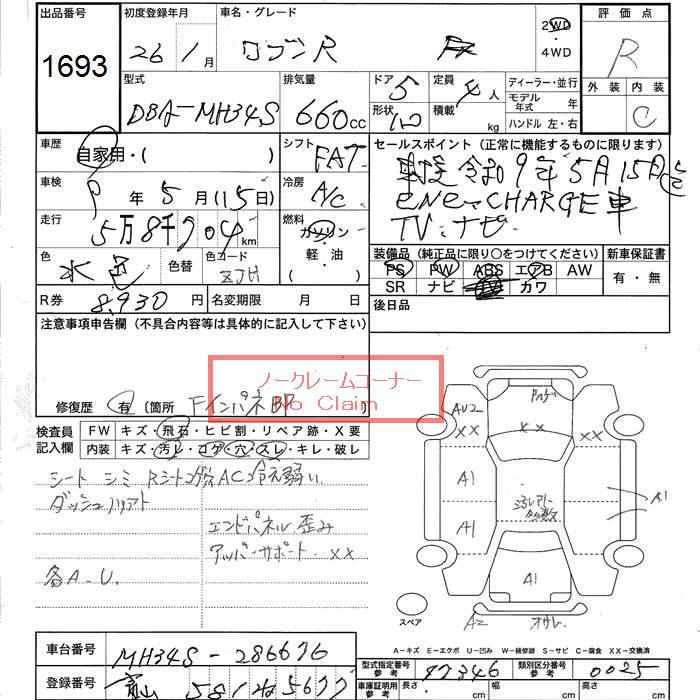 出品番号 初度登録年月 車名・グレード 評価点
1693 26 1月 ワゴンR FX 2WD ・ 4WD R
外装 内装 C
型式 排気量 ドア 5 定員 4人 ディーラー・並行
DBA-MH34S 660cc 形状 積載 kg モデル年式 年
ハンドル 左・右
車歴 自家用・( ) シフト FAT セールスポイント (正常に機能するものに限ります)
車検 9年5月(15日) 冷房 A/C 車検 令和9年5月15日
走行 5万8千 km 燃料 ガソリン・軽油( ) ene-CHARGE車
TV・ナビ
色 水色 色替 色コード ZJH 装備品 (純正品に限り○をつけてください) 新車保証書
PS PW ABS エアB AW 有・無
SR ナビ TV カワ
R券 8,930円 名変期限 月 日 後日品
注意事項申告欄 (不具合内容等は具体的に記入して下さい)
ノークレームコーナー
No Claim
修復歴 有 〔箇所 Fインパネ部
検査員記入欄 FW キズ・飛石・ヒビ割・リペア跡・X要
内装 キズ・汚レ・コゲ・穴・スレ・キレ・破レ
シート シミ AC冷え弱い
ダッシュノリアト
エンドパネル 歪み
アッパーサポート XX
各A.U.
AU2 XX XX
A1 A1
A1
A1
スペア A2
A-キズ E-エクボ U-凹み W-補修跡 S-サビ C-腐食 XX-交換済
車台番号 MH34S-286676 型式指定番号 参考 17346 類別区分番号 参考 0025
登録番号 富山 581 ね 5677 車庫証明用 参考 長さ cm 幅 cm 高さ cm